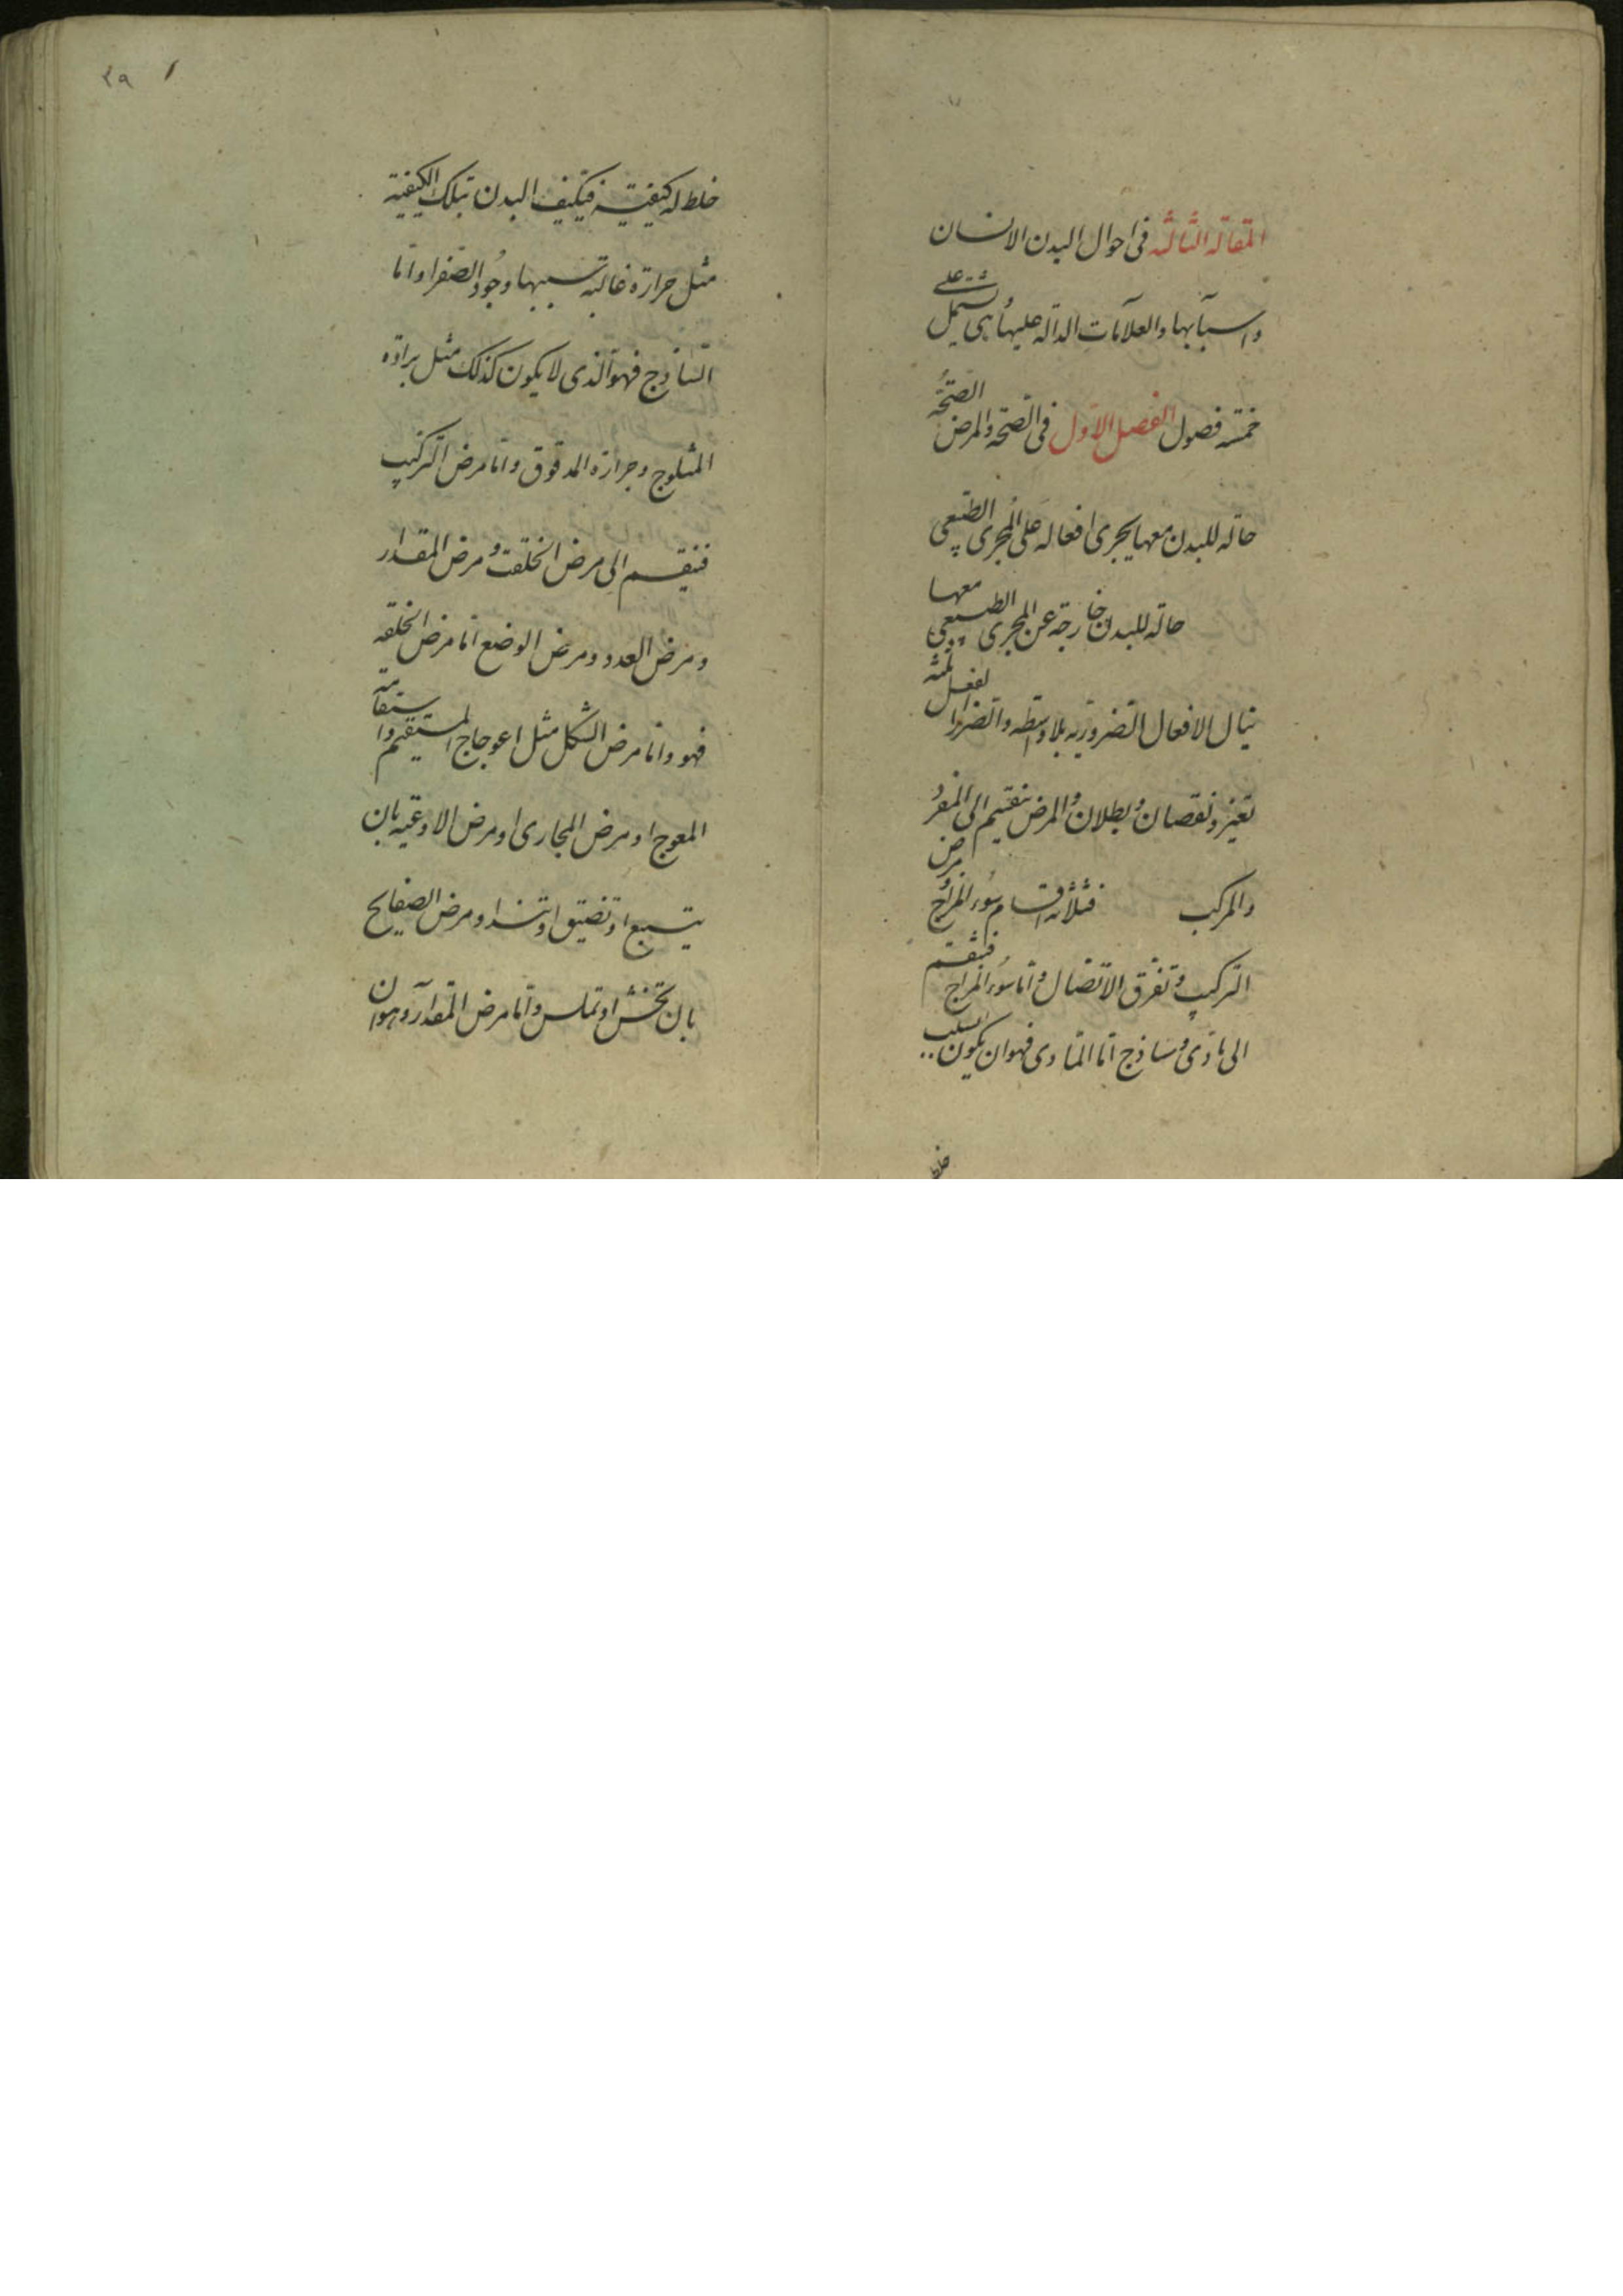 المقالة الثالثه فی احوال البدن الانسان
واسبابها والعلامات الدالة علیها وهی تشتمل علی
خمسة فصول الفصل الاول فی الصحة والمرض الصحة
حالة للبدن معها یجری افعاله علی المجری الطبیعی
حالة للبدن خارجة عن المجری الطبیعی معها
ینال الافعال الضرر به بلا واسطه والضرر الفعل ثلثه
تغیر ونقصان وبطلان والمرض ینقسم الی المفرد
والمرکب فثلاثه اقسام سوء المزاج ومرض
الترکیب وتفرق الاتصال واما سوء المزاج فینقسم
الی مادی وساذج اما المادی فهو ان یکون لسبب
خلط
٢٩
خلط له کیفیة فیتکیف البدن بتلک الکیفیة
مثل حرارة غالبة سببها وجود الصفرا واما
الساذج فهو الذی لا یکون کذلک مثل برادة
المثلوج وحرارة المدقوق واما مرض الترکیب
فینقسم الی مرض الخلقت ومرض المقدار
ومرض العدد ومرض الوضع اما مرض الخلقه
فهو واما مرض الشکل مثل اعوجاج المستقیم واستقامة
المعوج او مرض المجاری او مرض الاوعیه بان
یتسع او تضیق او تنسد او مرض الصفایح
بان تخشن او تملس واما مرض المقدار وهو ان